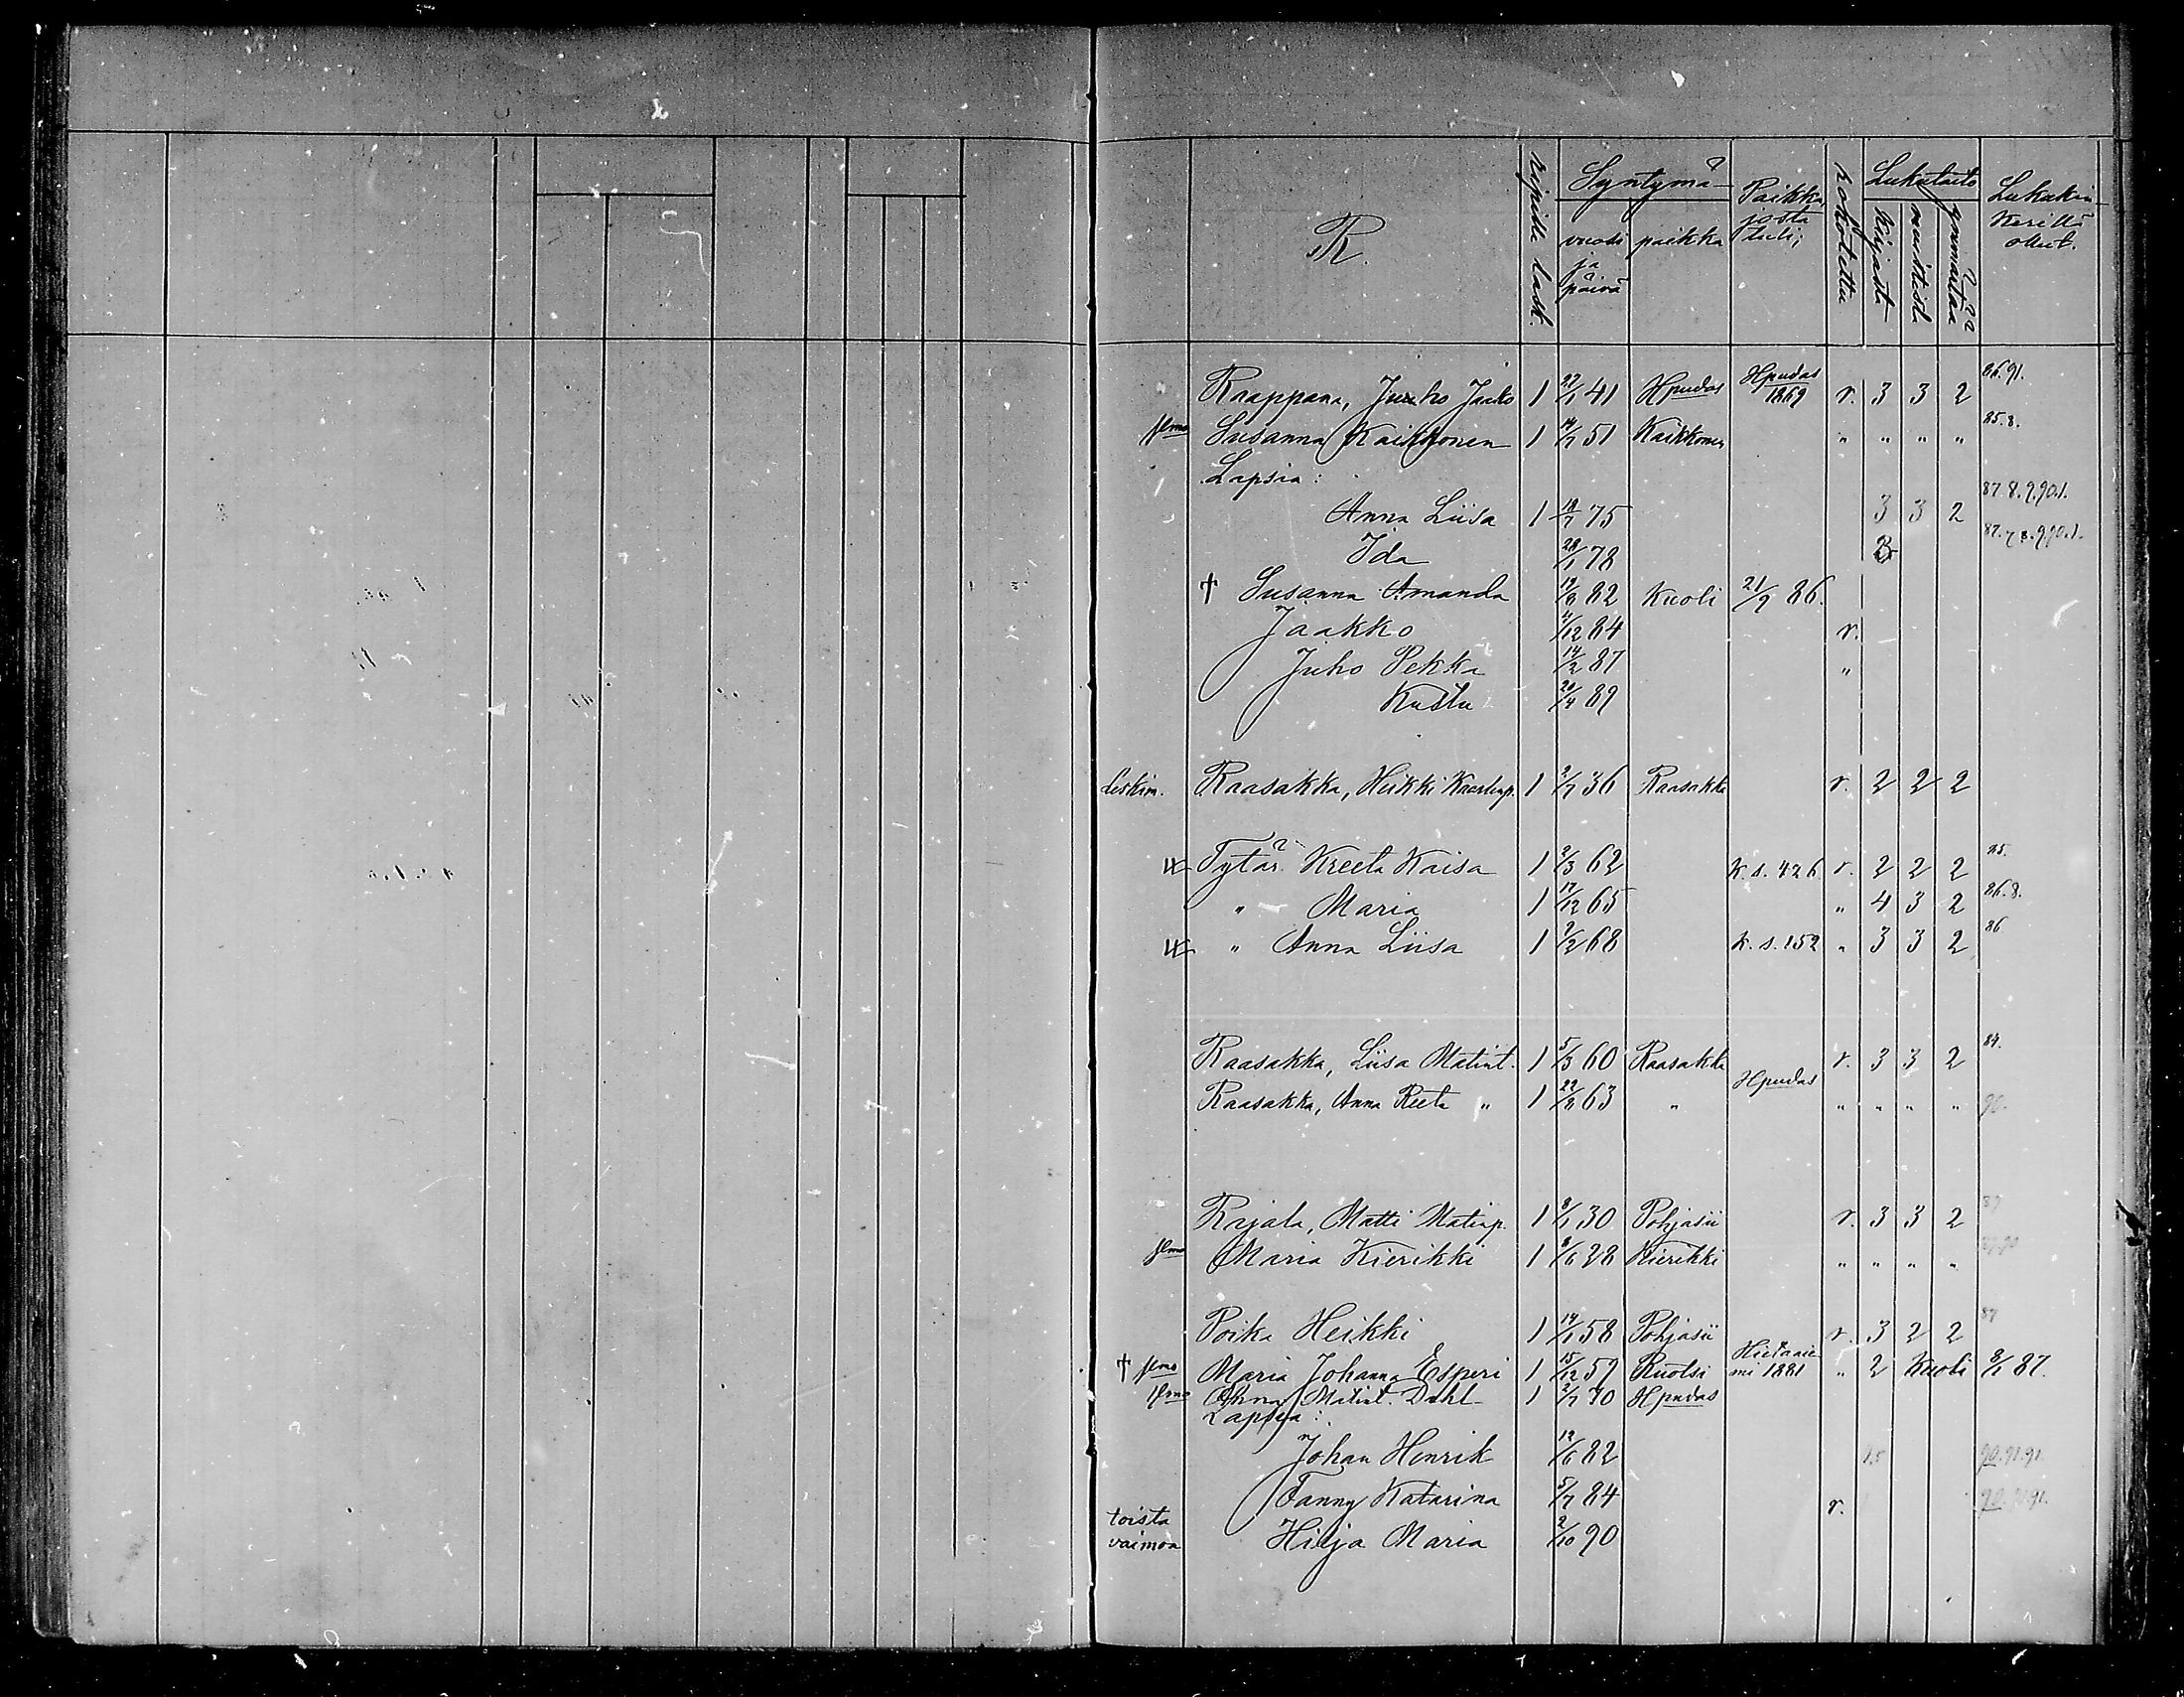 R.
Ripille lask.
Syntymä-
vuosi ja päivä
paikka
Paikka, josta tuli;
rokotettu
Lukutaito
kirjasta
muistista
ymmärtää
Lukukinkerillä ollut.
Raappana, Juho Jaako 1 27/1 41 Hpudas Hpudas 1869 r. 3 3 2 86.91.
Susanna Kaikkonen 1 14/7 51 Kaikkonen " " " " 85.8.
Lapsia:
Anna Liisa 1 18/7 75 3 3 2 87.8.9.90.1.
Ida 28/1 78
† Susanna Amanda 19/8 82 Kuoli 21/9 86.
Jaakko /12 84 r.
Juho Pekka 14/2 87 "
Kustu 20/4 89
Leskim. Raasakka, Heikki Kaarlenp. 1 2/7 36 Raasakka r. 2 2 2
Tytär Kreeta Kaisa 1 2/3 62 K.s. 426 r. 2 2 2 85.
" Maria 1 17/12 65 " 4 3 2 86.8.
" Anna Liisa 1 2/2 68 K.s. 152 " 3 3 2 86
Raasakka, Liisa Matint. 1 5/3 60 Raasakka r. 3 3 2 84.
Raasakka, Anna Reeta " 1 22/8 63 " Hpudas " " " " 90.
Rajala, Matti Matinp. 1 8/1 30 Pohjasii r. 3 3 2 89
Maria Kierikki 1 8/6 28 Kierikki " " " "
Poika Heikki 1 14/1 58 Pohjasii r. 3 2 2 87
† Maria Johanna Esperi 1 15/12 59 Ruotsi Hietaniemi 1881 " 2 Kuoli 8/1 87.
Anna Matint. Dahl 1 2/7 70 Hpudas
Lapsia:
Johan Henrik 12/6 82 90.91.91.
Fanny Katarina 5/7 84 r.
toista
vaimoa Hilja Maria 2/10 90